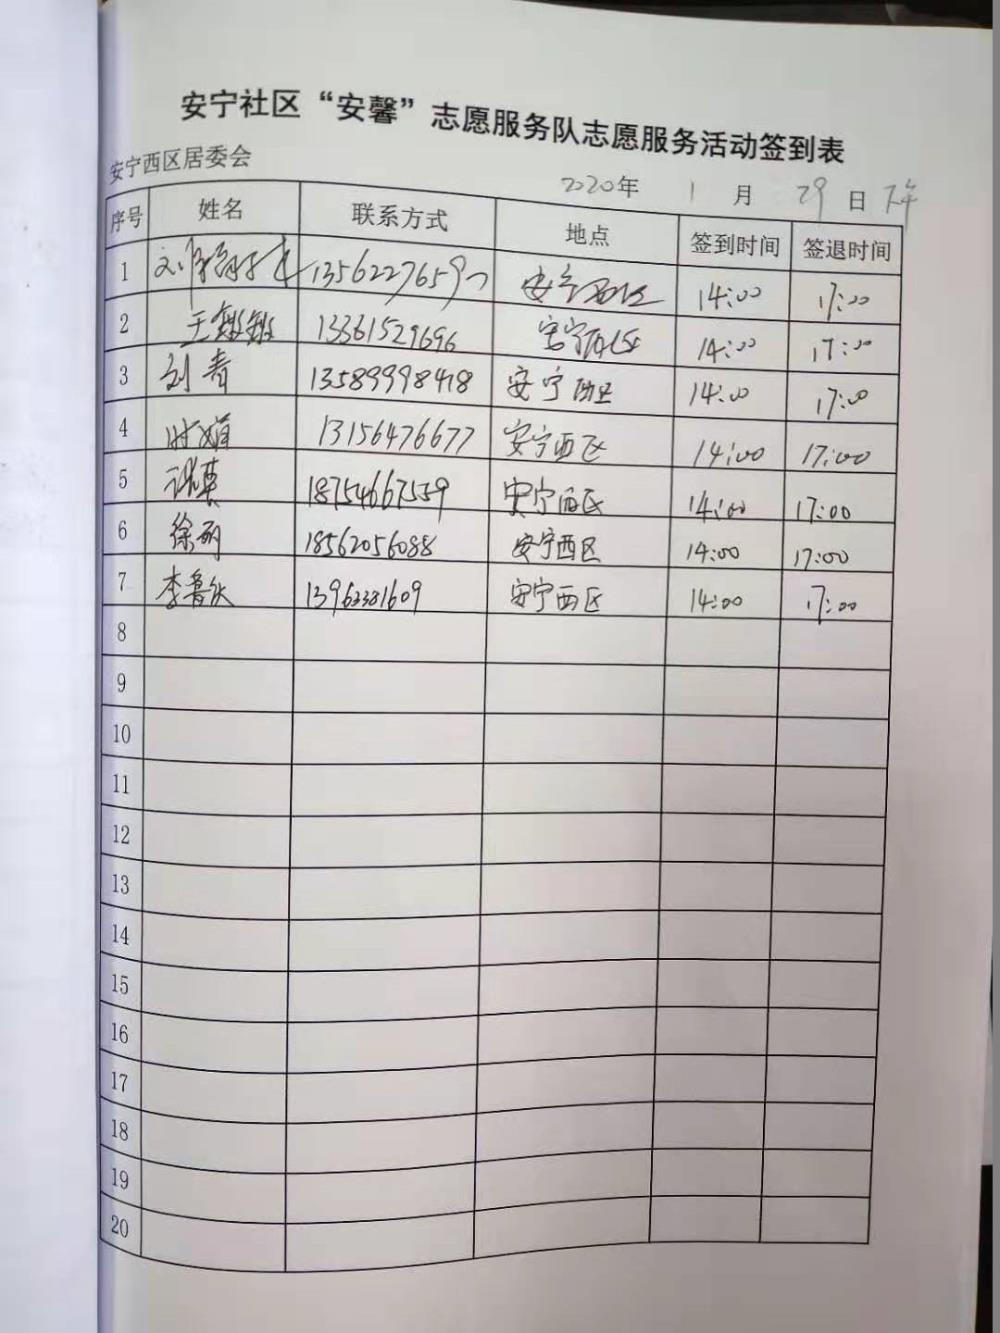 安宁社区“安馨”志愿服务队志愿服务活动签到表
安宁西区居委会 2020年 1月 29日 下午
序号 姓名 联系方式 地点 签到时间 签退时间
1 安宁西区 14:00 17:00
2 王敏敏 13361529696 安宁西区 14:00 17:00
3 刘青 13589998418 安宁西区 14:00 17:00
4 时娟 13156476677 安宁西区 14:00 17:00
5 18754667559 安宁西区 14:00 17:00
6 徐丽 18562056088 安宁西区 14:00 17:00
7 13963381609 安宁西区 14:00 17:00
8
9
10
11
12
13
14
15
16
17
18
19
20